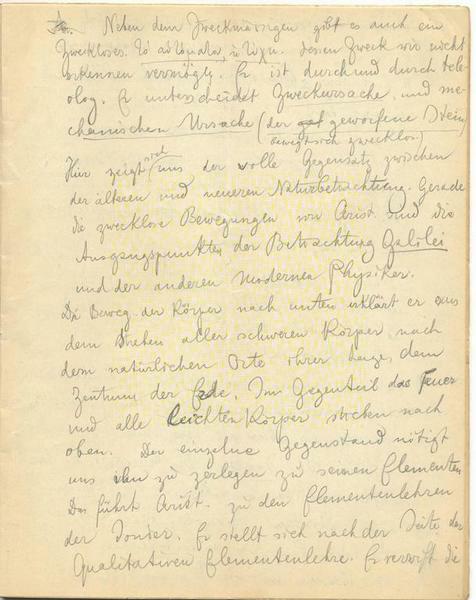 Neben dem Zweckmässigen gibt es auch ein
Zweckloses. Τὸ αὐτόματον u. τύχη. dessen Zweck wir nicht
erkennen vermögen. Er ist durch und durch tele-
olog. Er unterscheidet Zweckursache und me-
chanischen Ursache (der geworfene Stein)
bewegt sich zwecklos)
Hier zeigt uns der volle Gegensatz zwischen
der älteren und neueren Naturbetrachtung. Gerade
die zwecklose Bewegungen von Arist. sind die
Ausgangspunkten der Betrachtung Galilei
und der anderen modernen Physiker.
Die Beweg. der Körper nach unten erklärt er aus
dem Streben aller schweren Körper nach
dem natürlichen Orte ihrer dem
Zentrum der Erde. Im Gegenteil das Feuer
und alle leichten Körper streben nach
oben. Der einzelne Gegenstand nötigt
uns ihn zu zerlegen zu seinen Elementen
Das führt Arist. zu den Elementenlehren
der Ionier. Er stellt sich nach der Seite der
Qualitativen Elementenlehre. Er verwirft die